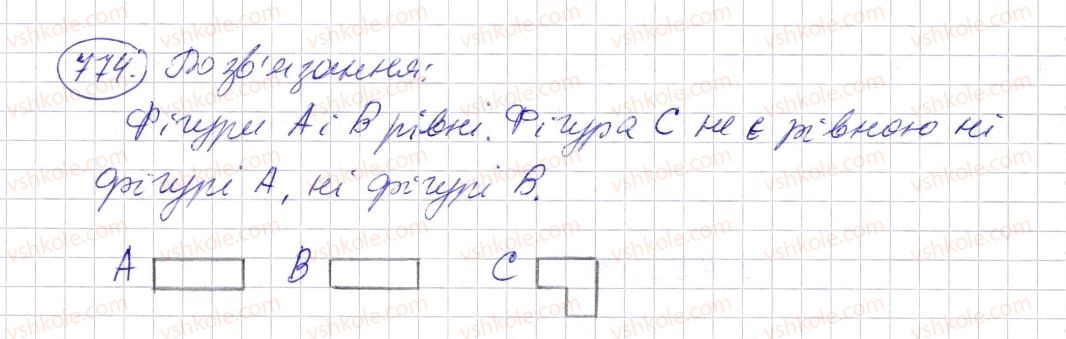 774. Розв'язання:
Фігури А і В рівні. Фігура С не є рівною ні
фігурі А, ні фігурі В.
А В С